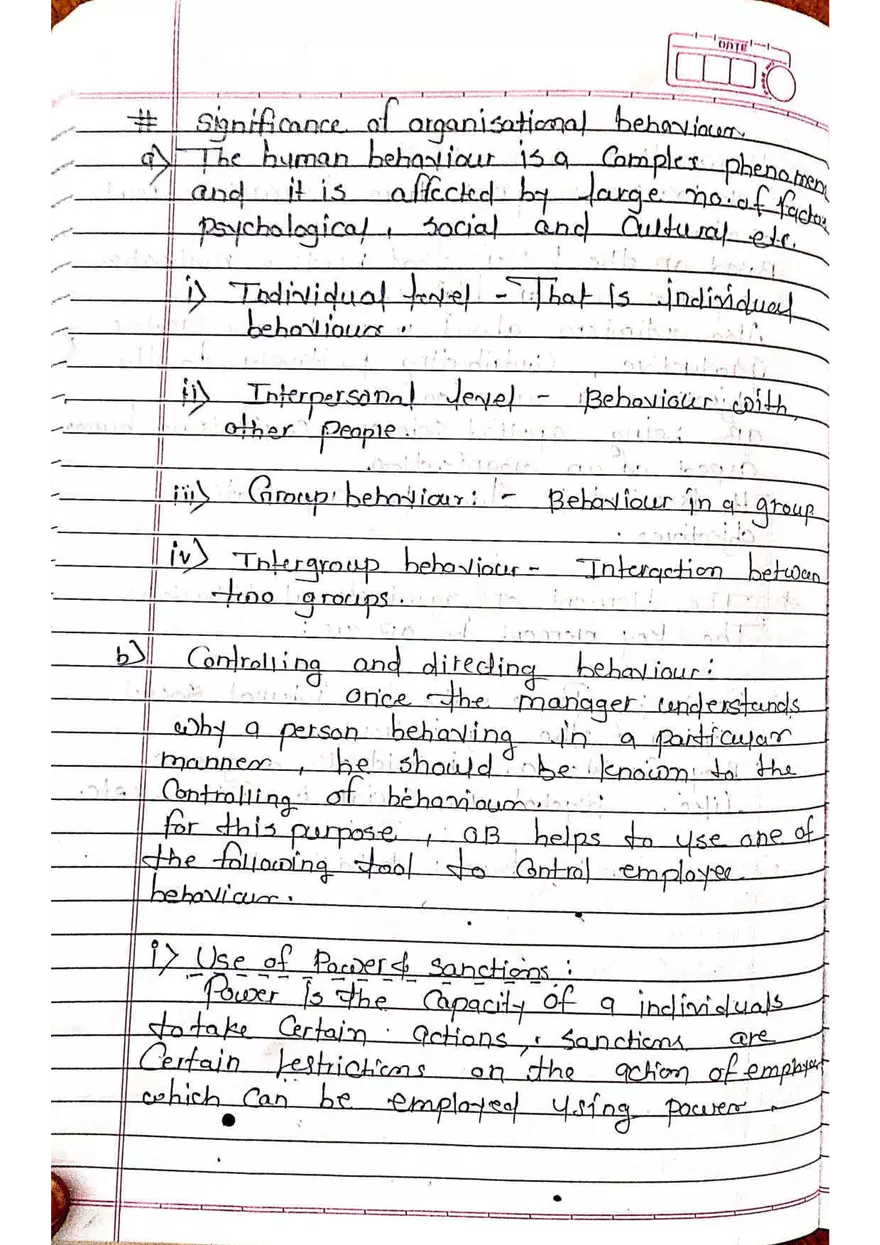 DATE
# Significance of organisational behaviour
a) The human behaviour is a Complex phenomen
and it is affected by large no. of factor
psychological, social and Cultural etc.
i) Individual level - That is individual
behaviour.
ii) Interpersonal level - Behaviour with
other people.
iii) Group behaviour: - Behaviour in a group
iv) Intergroup behaviour - Interaction betwen
two groups.
b) Controlling and directing behaviour:
once the manager understands
why a person behaving in a particular
manner, he should be known to the
Controlling of behaviour.
for this purpose, OB helps to use one of
the following tool to Control employee
behaviour.
i) Use of Power & sanctions:
Power is the Capacity of a individuals
to take Certain actions, sanctions are
Certain restrictions on the action of employee
which Can be employed using power.